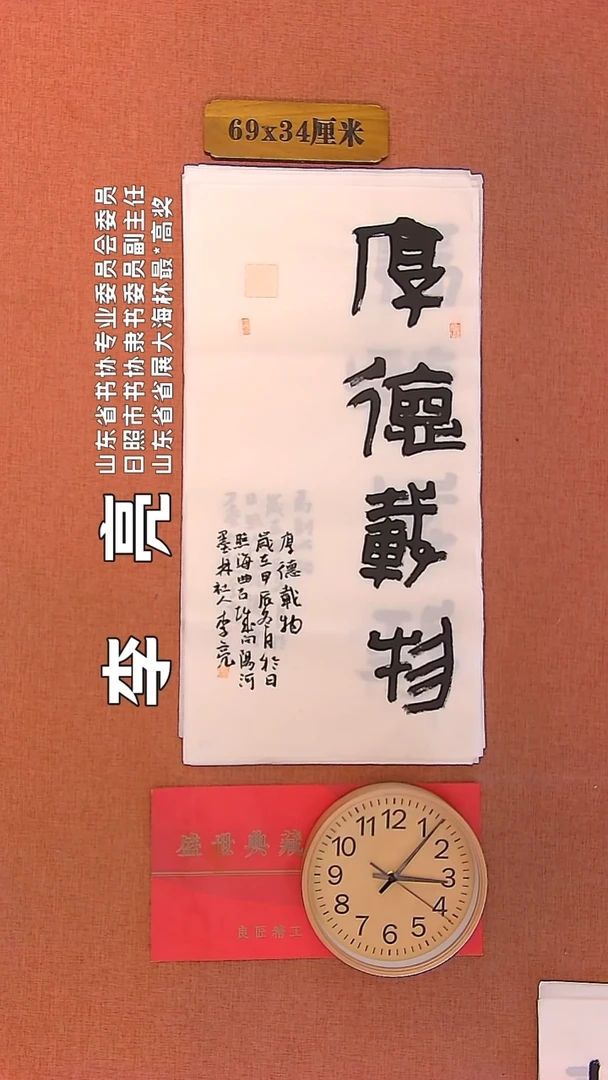 69x34厘米
山东省书协专业委员会委员
日照市书协隶书委员副主任
山东省省展大海杯最*高奖
李 亮
厚德載物
厚德載物
歲在甲辰冬月於日
照海曲古城向陽河
墨林社人李亮
盛世典藏
良匠精工
12
1
2
3
4
5
6
7
8
9
10
11